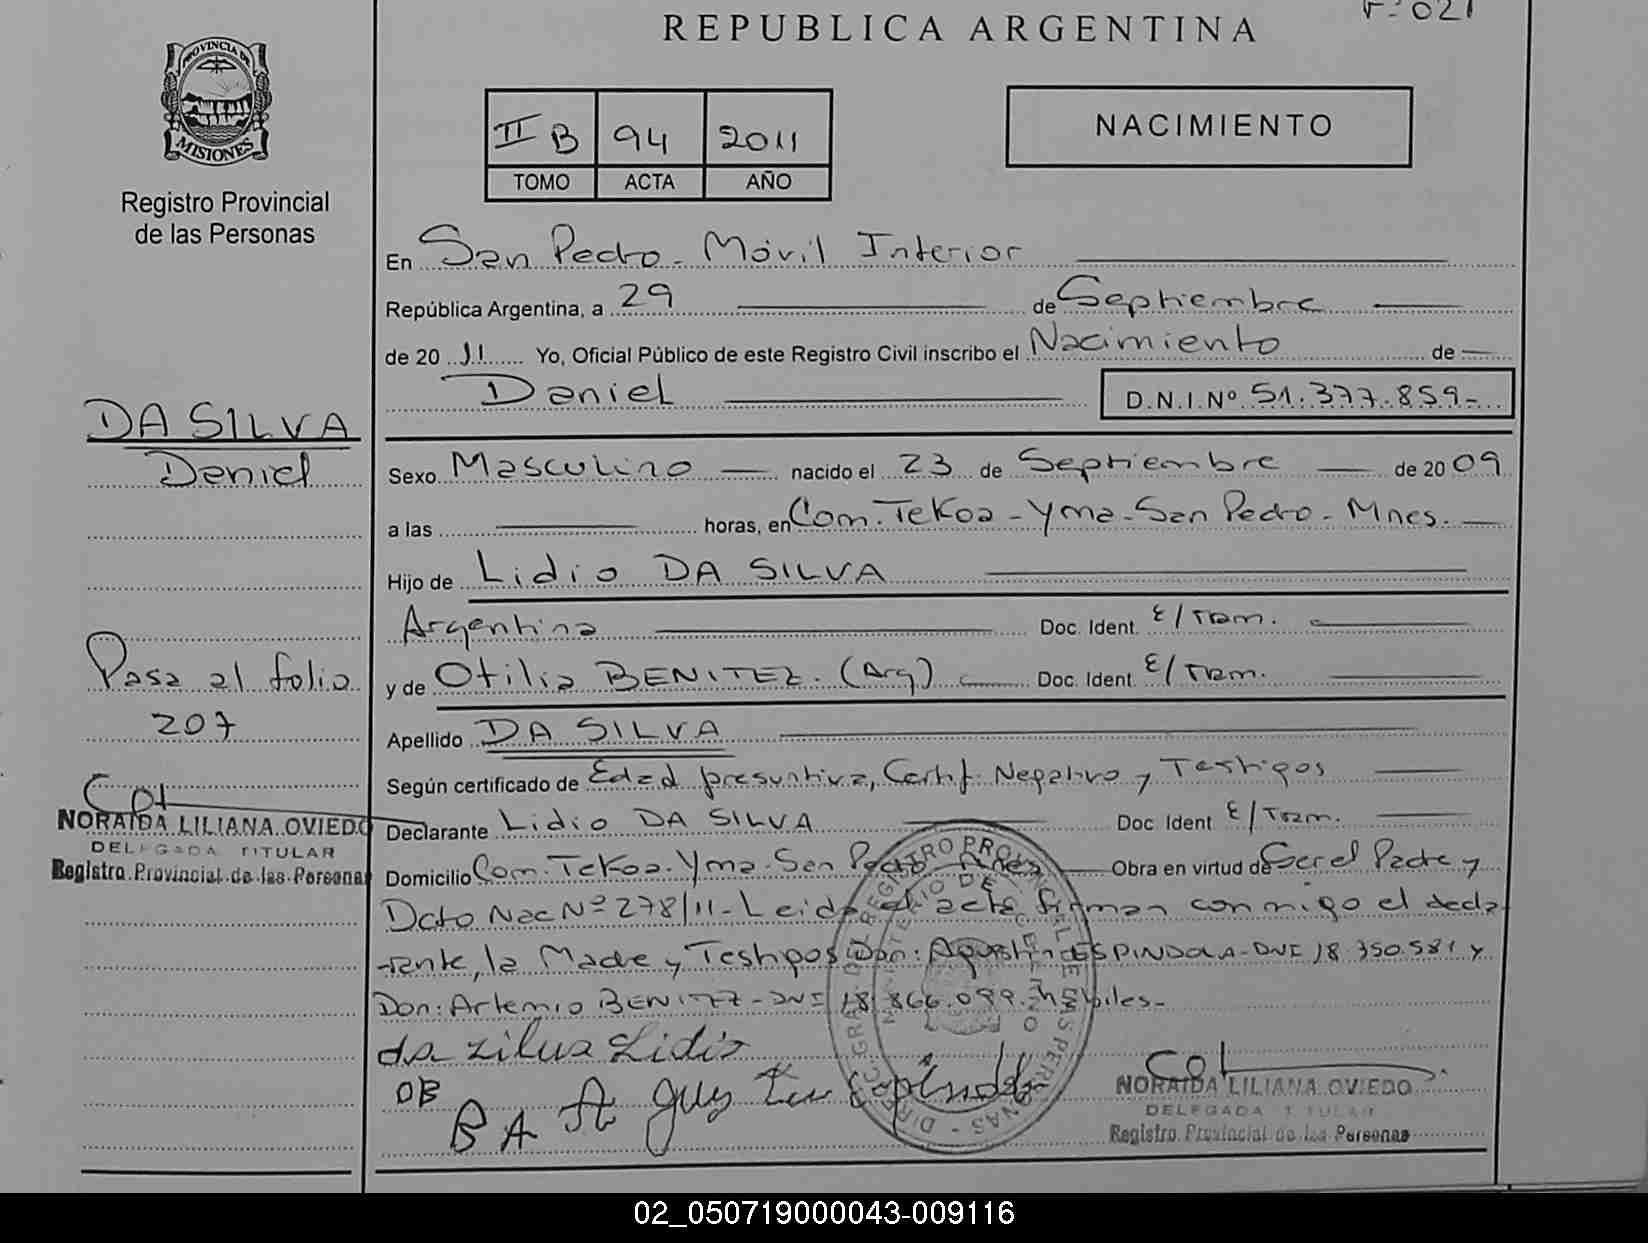 F-021
REPUBLICA ARGENTINA
PROVINCIA DE
MISIONES
Registro Provincial
de las Personas
II B 94 2011
TOMO ACTA AÑO
NACIMIENTO
En San Pedro - Móvil Interior
República Argentina, a 29 de Septiembre
de 20 11 Yo, Oficial Público de este Registro Civil inscribo el Nacimiento de
Daniel D.N.I.Nº 51.377.859-
DA SILVA
Daniel
Sexo Masculino nacido el 23 de Septiembre de 20 09
a las horas, en Com. Tekoa - Yma - San Pedro - Mnes.
Hijo de Lidio DA SILVA
Argentina Doc. Ident. E/Tram.
Pasa al folio
207
y de Otilia BENITEZ. (Arg) Doc. Ident. E/Tram.
Apellido DA SILVA
Según certificado de Edad presuntiva, Certif. Negativo y Testigos
NORAIDA LILIANA OVIEDO
DELEGADA TITULAR
Registro Provincial de las Personas
Declarante Lidio DA SILVA Doc Ident E/Tram.
Domicilio Com. Tekoa - Yma - San Pedro Mnes Obra en virtud de Ser el Padre y
Dcto Nac Nº 278/11 - Leida el acta firman conmigo el decla
rante, la Madre y Testigos Don: Agustin ESPINDOLA - DNI 18.350.581 y
Don: Artemio BENITEZ - DNI 18.866.099. hábiles-
da zilua Lidio
OB
BA A gus tin Espindola
NORAIDA LILIANA OVIEDO
DELEGADA TITULAR
Registro Provincial de las Personas
02_050719000043-009116